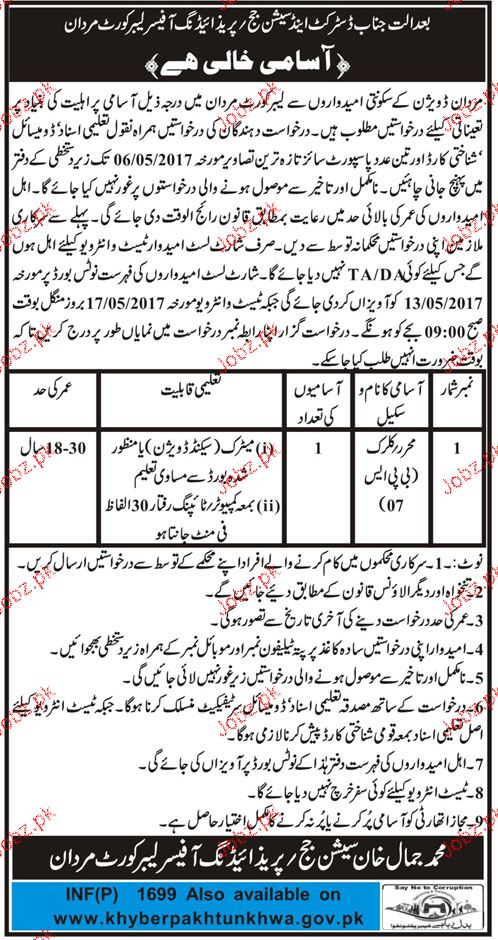 بعدالت جناب ڈسٹرکٹ اینڈ سیشن جج/ پریذائیڈنگ آفیسر لیبر کورٹ مردان
﴿آسامی خالی ہے﴾
مردان ڈویژن کے سکونتی امیدواروں سے لیبر کورٹ مردان میں درجہ ذیل آسامی پر اہلیت کی بنیاد پر
تعیناتی کیلئے درخواستیں مطلوب ہیں۔ درخواست دہندگان کی درخواستیں ہمراہ نقول تعلیمی اسناد، ڈومیسائل
شناختی کارڈ اور تین عدد پاسپورٹ سائز تازہ ترین تصاویر مورخہ 06/05/2017 تک زیر دستخطی کے دفتر
میں پہنچ جانی چاہئیں۔ نامکمل اور تاخیر سے موصول ہونے والی درخواستوں پر غور نہیں کیا جائے گا۔ اہل
امیدواروں کی عمر کی بالائی حد میں رعایت بمطابق قانون رائج الوقت دی جائے گی۔ پہلے سے سرکاری
ملازمین اپنی درخواستیں محکمانہ توسط سے دیں۔ صرف شارٹ لسٹ امیدوار ٹیسٹ و انٹرویو کیلئے اہل ہوں
گے جس کیلئے کوئی TA/DA نہیں دیا جائے گا۔ شارٹ لسٹ امیدواروں کی فہرست نوٹس بورڈ پر مورخہ
13/05/2017 کو آویزاں کردی جائے گی جبکہ ٹیسٹ و انٹرویو مورخہ 17/05/2017 بروز منگل بوقت
صبح 09:00 بجے کو ہونگے۔ درخواست گزار اپنا رابطہ نمبر درخواست میں نمایاں طور پر درج کریں تا کہ
بوقت ضرورت انہیں طلب کیا جا سکے۔
نمبر شمار
آسامی کا نام و سکیل
آسامیوں کی تعداد
تعلیمی قابلیت
عمر کی حد
1
محرر/کلرک (بی پی ایس 07)
1
(i) میٹرک (سیکنڈ ڈویژن) یا منظور
شدہ بورڈ سے مساوی تعلیم
(ii) بمعہ کمپیوٹر/ٹائپنگ رفتار 30 الفاظ
فی منٹ جانتا ہو
18-30 سال
نوٹ:۔ 1۔ سرکاری محکموں میں کام کرنے والے افراد اپنے محکمے کے توسط سے درخواستیں ارسال کریں۔
2۔ تنخواہ اور دیگر الاؤنس قانون کے مطابق دیئے جائیں گے۔
3۔ عمر کی حد درخواست دینے کی آخری تاریخ سے تصور ہوگی۔
4۔ امیدوار اپنی درخواستیں سادہ کاغذ پر پتہ ٹیلیفون نمبر اور موبائل نمبر کے ہمراہ زیر دستخطی بھجوائیں۔
5۔ نامکمل اور تاخیر سے موصول ہونے والی درخواستیں زیر غور نہیں لائی جائیں گی۔
6۔ درخواست کے ساتھ مصدقہ تعلیمی اسناد، ڈومیسائل سرٹیفکیٹ منسلک کرنا ہوگا۔ جبکہ ٹیسٹ انٹرویو کیلئے
اصل تعلیمی اسناد بمعہ قومی شناختی کارڈ پیش کرنا لازمی ہوگا۔
7۔ اہل امیدواروں کی فہرست دفتر ہذا کے نوٹس بورڈ پر آویزاں کی جائے گی۔
8۔ ٹیسٹ انٹرویو کیلئے کوئی سفر خرچ نہیں دیا جائے گا۔
9۔ مجاز اتھارٹی کو آسامی پُر کرنے یا پُر نہ کرنے کا مکمل اختیار حاصل ہے۔
محمد جمال خان سیشن جج/ پریذائیڈنگ آفیسر لیبر کورٹ مردان
INF(P) 1699 Also available on
www.khyberpakhtunkhwa.gov.pk
Say No to Corruption
Jobz.pk